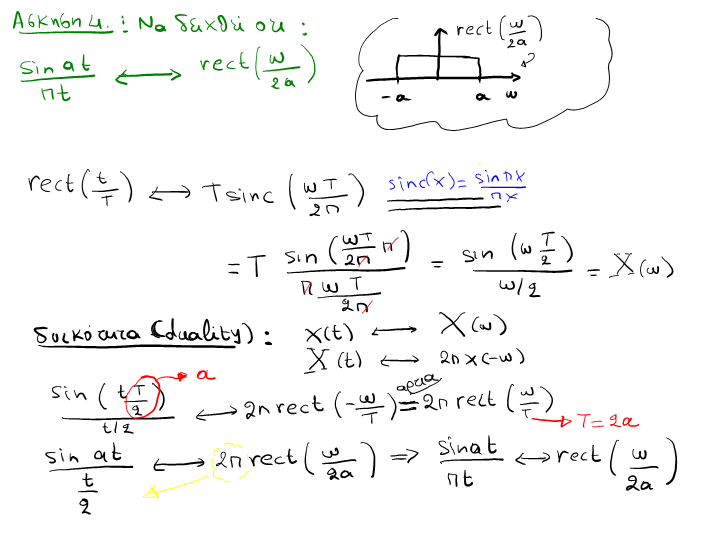 Άσκηση 4. : Να δειχθεί οτι :
sin at / πt ⟷ rect(ω/2a)
rect(ω/2a)
-a a ω
rect(t/T) ⟷ T sinc(ωT/2π) sinc(x) = sin πx / πx
= T sin(ωT/2π π) / (π ωT/2π) = sin(ω T/2) / (ω/2) = X(ω)
δυικότητα (duality) : x(t) ⟷ X(ω)
X(t) ⟷ 2π x(-ω)
sin(t T/2) / (t/2) → a ⟷ 2π rect(-ω/T) = άρτια 2π rect(ω/T) → T = 2a
sin at / (t/2) ⟷ 2π rect(ω/2a) ⇒ sin at / πt ⟷ rect(ω/2a)